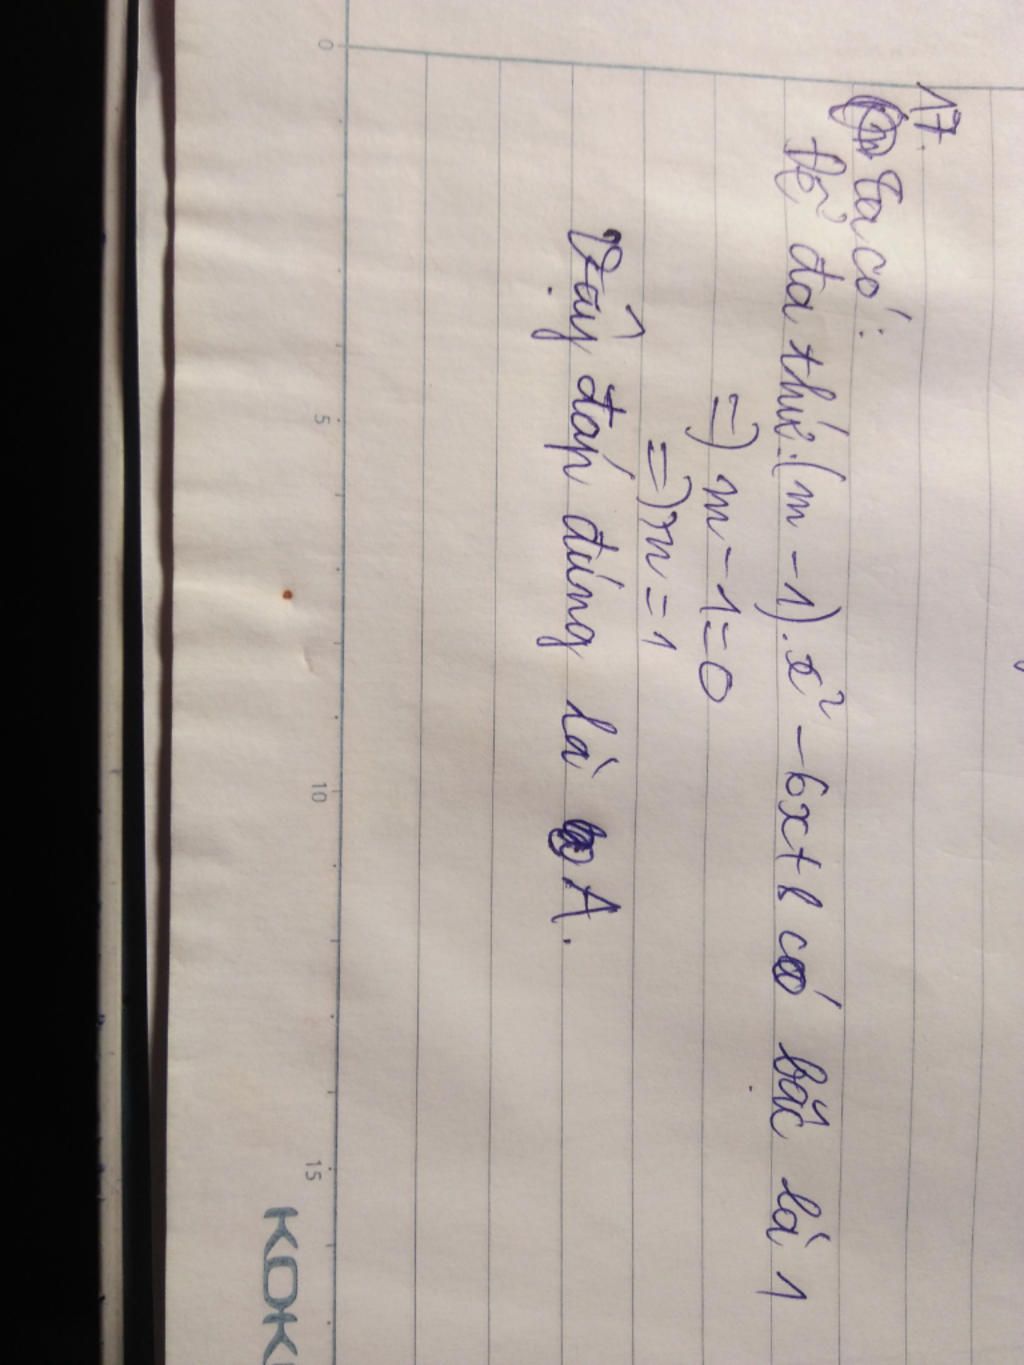 17.
Ta có:
Để đa thức: (m - 1).x² - 6x + 8 có bấc là 1
=) m - 1 = 0
=) m = 1
Vậy đáp đúng là A.
0 5 10 15
KOK